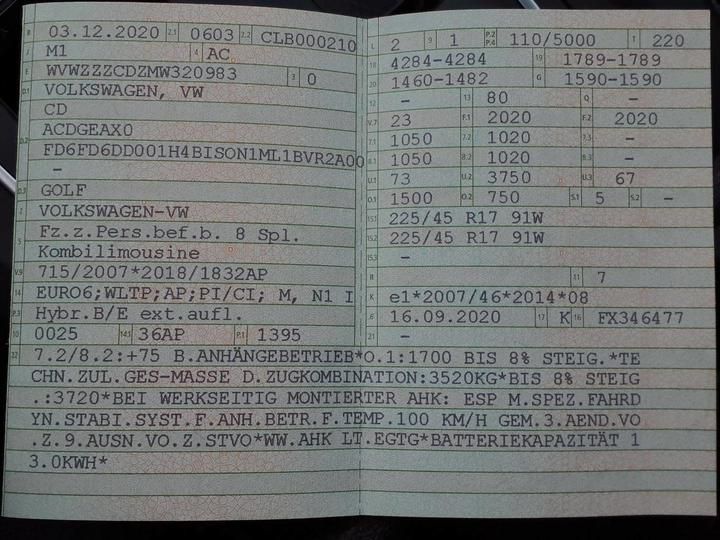 B 03.12.2020 2.1 0603 2.2 CLB000210
J M1 4 AC
E WVWZZZCDZMW320983 3 0
D.1 VOLKSWAGEN, VW
CD
ACDGEAX0
D.2 FD6FD6DD001H4BISON1ML1BVR2A00
-
D.3 GOLF
2 VOLKSWAGEN-VW
5 Fz.z.Pers.bef.b. 8 Spl.
Kombilimousine
V.9 715/2007*2018/1832AP
14 EURO6;WLTP;AP;PI/CI; M, N1 I
P.3 Hybr.B/E ext.aufl.
10 0025 14.1 36AP P.1 1395
L 2 9 1 P.2 P.4 110/5000 T 220
18 4284-4284 19 1789-1789
20 1460-1482 G 1590-1590
12 - 13 80 Q -
V.7 23 F.1 2020 F.2 2020
7.1 1050 7.2 1020 7.3 -
8.1 1050 8.2 1020 8.3 -
U.1 73 U.2 3750 U.3 67
O.1 1500 O.2 750 S.1 5 S.2 -
15.1 225/45 R17 91W
15.2 225/45 R17 91W
15.3 -
R 11 7
K e1*2007/46*2014*08
6 16.09.2020 17 K 16 FX346477
21 -
22 7.2/8.2:+75 B.ANHÄNGEBETRIEB*O.1:1700 BIS 8% STEIG.*TE
CHN.ZUL.GES-MASSE D.ZUGKOMBINATION:3520KG*BIS 8% STEIG
.:3720*BEI WERKSEITIG MONTIERTER AHK: ESP M.SPEZ.FAHRD
YN.STABI.SYST.F.ANH.BETR.F.TEMP.100 KM/H GEM.3.AEND.VO
.Z.9.AUSN.VO.Z.STVO*WW.AHK LT.EGTG*BATTERIEKAPAZITÄT 1
3.0KWH*